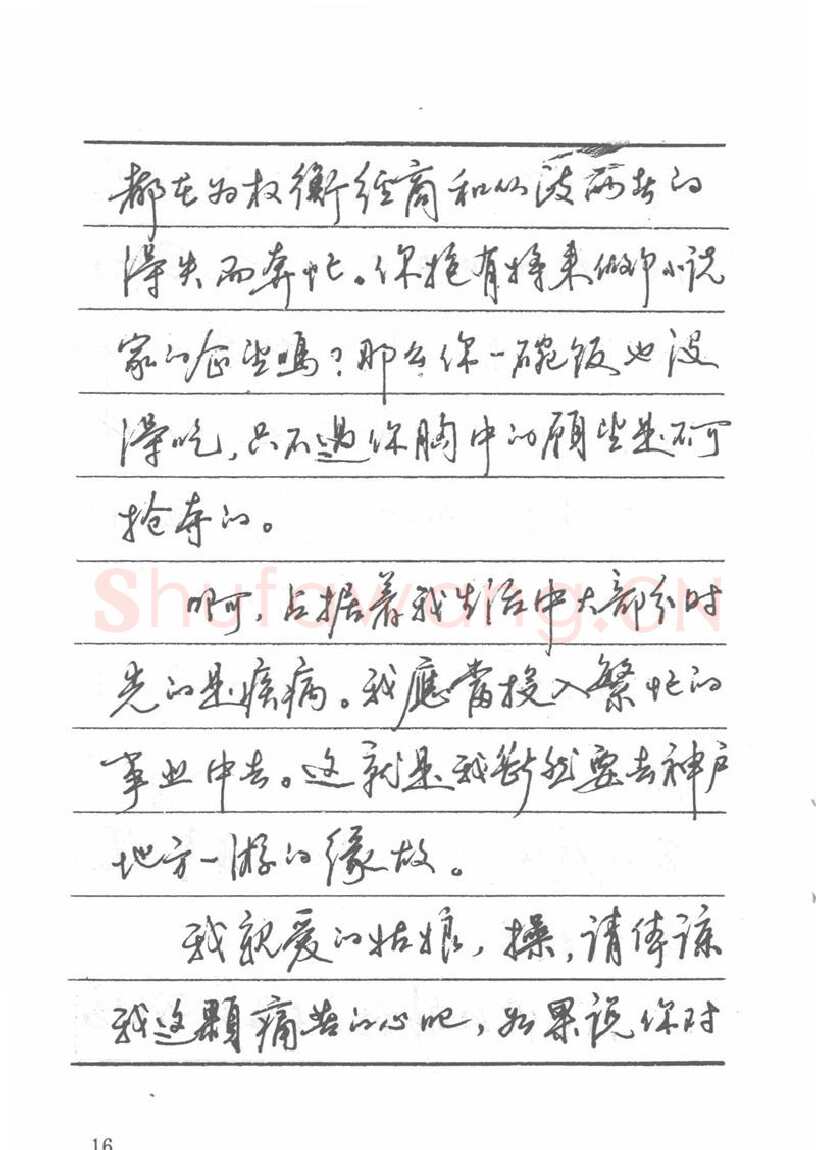 都在为权衡经商和从政两者的
得失而奔忙。你抱有将来做个小说
家的企望吗?那么你一碗饭也没
得吃,只不过你胸中的愿望是不可
抢夺的。
啊,占据着我生活中大部分时
光的是疾病。我應當投入繁忙的
事业中去。这就是我断然要去神户
地方一游的缘故。
我親爱的姑娘,操,请体谅
我这颗痛苦的心吧,如果说你对
Shufawang.CN
16